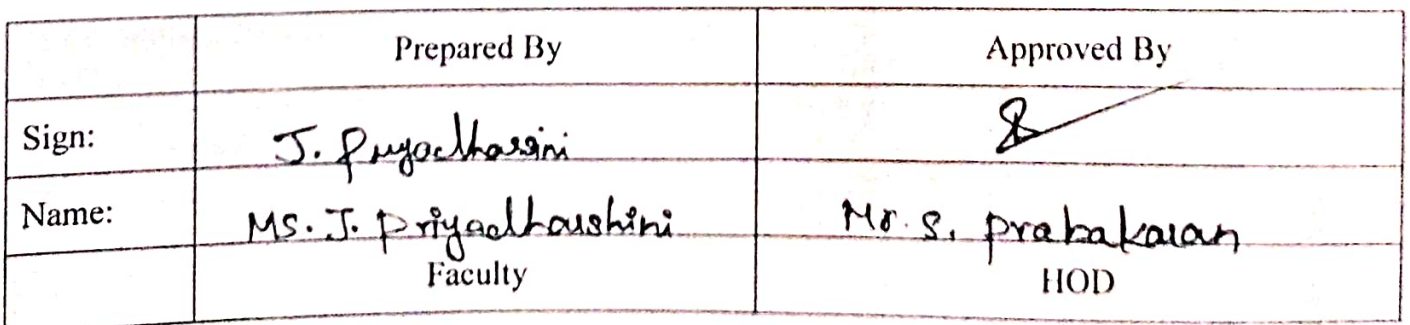 Prepared By Approved By
Sign: J. Priyadharsini
Name: Ms. J. Priyadharshini Mr. S. Prabakaran
Faculty HOD